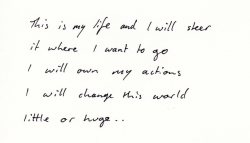 This is my life and I will steer
it where I want to go
I will own my actions
I will change this world
little or huge..